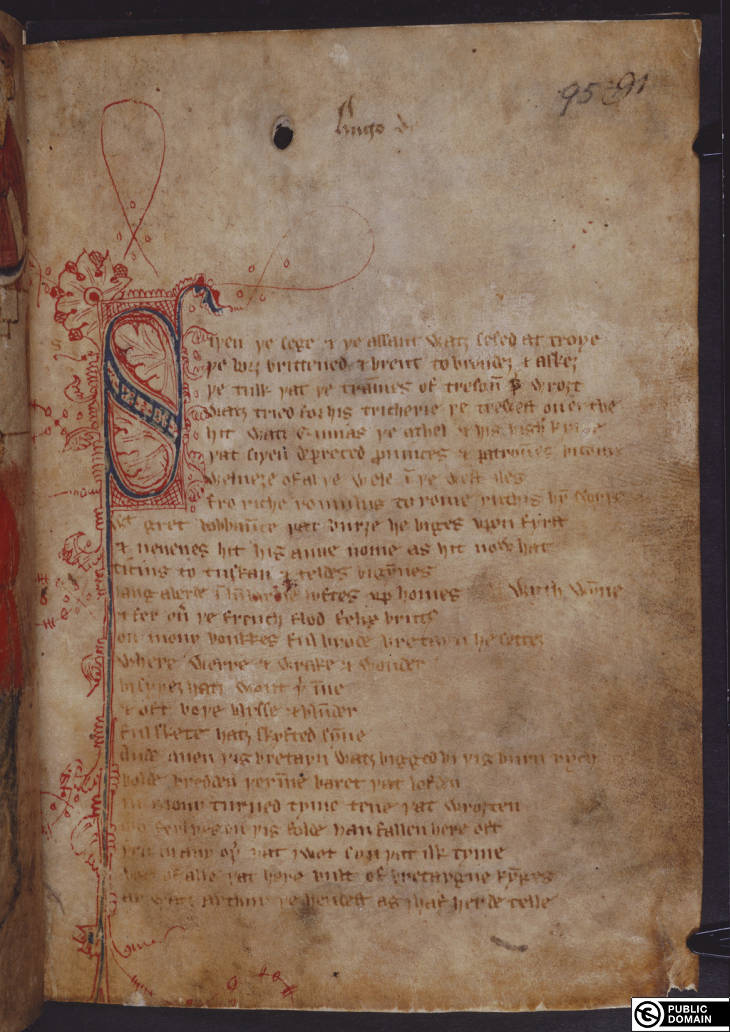 Hugo d
95 91
Siþen þe sege & þe assaut watz sesed at troye
þe borȝ brittened & brent to brondeȝ & askez
þe tulk þat þe trāmes of tresoun þ̄ wroȝt
watz tried for his tricherie þe trewest on erthe
hit watz Ennias þe athel & his highe kynde
þat siþen depreced prouinces & patrounes bicome
welneȝe of al þe wele ī þe west iles
fro riche romulus to rome ricchis hȳ swyþe
wt gret bobbaūce þat burȝe he biges vpon fyrst
& neuenes hit his aune nome as hit now hat
ticius to tuskan & teldes bigȳnes
langaberde ī lūbardie lyftes vp homes wyth wȳne
& fer oū þe french flod felix brutus
on mony bonkkes ful brode bretayn he settez
where werre & wrake & wonder
bi syþez hatz wont þ̄ īne
& oft boþe blysse & blūder
ful skete hatz skyfted sȳne
ande quen þis bretayn watz bigged bi þis burn rych
bolde bredden þer īne baret þat lofden
in mony turned tyme tene þat wroȝten
mo ferlyes on þis folde han fallen here oft
þen in any oþ̄ þat I wot syn þat ilk tyme
bot of alle þat here bult of bretaygne kȳges
ay watz arthur þe hendest as I haf herde telle
PUBLIC
DOMAIN